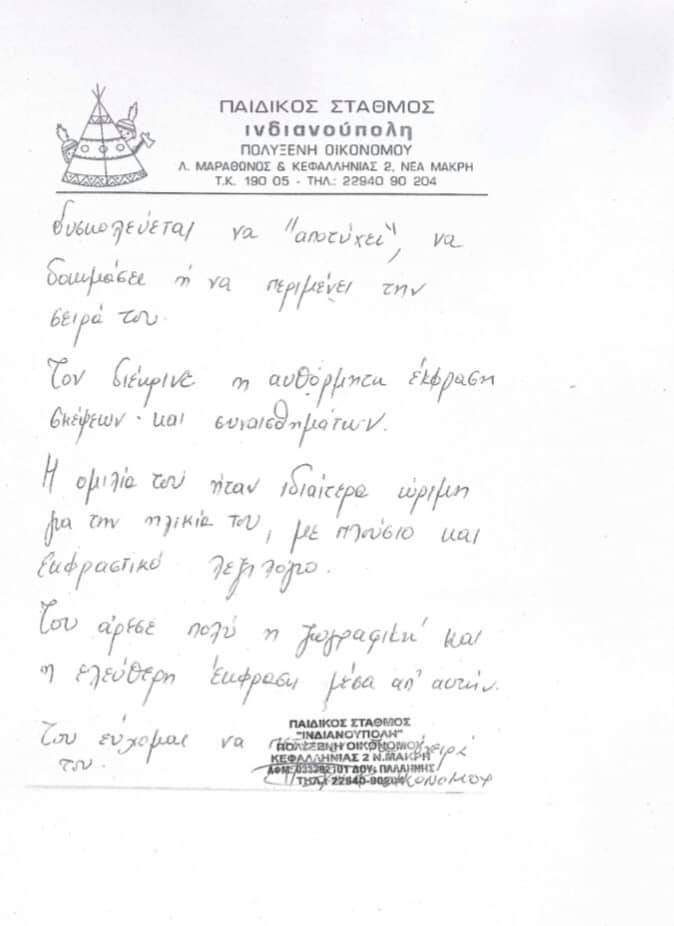 ΠΑΙΔΙΚΟΣ ΣΤΑΘΜΟΣ
ινδιανούπολη
ΠΟΛΥΞΕΝΗ ΟΙΚΟΝΟΜΟΥ
Λ. ΜΑΡΑΘΩΝΟΣ & ΚΕΦΑΛΛΗΝΙΑΣ 2, ΝΕΑ ΜΑΚΡΗ
Τ.Κ. 190 05 - ΤΗΛ.: 22940 90 204
δυσκολεύεται να "αποτύχει", να
δοκιμάσει ή να περιμένει την
σειρά του.
Τον διέκρινε η αυθόρμητη έκφραση
σκέψεων και συναισθημάτων.
Η ομιλία του ήταν ιδιαίτερα ώριμη
για την ηλικία του, με πλούσιο και
εκφραστικό λεξιλόγιο.
Του άρεσε πολύ η ζωγραφική και
η ελεύθερη έκφραση μέσα απ' αυτήν.
Του εύχομαι να
του.
ΠΑΙΔΙΚΟΣ ΣΤΑΘΜΟΣ
"ΙΝΔΙΑΝΟΥΠΟΛΗ"
ΠΟΛΥΞΕΝΗ ΟΙΚΟΝΟΜΟΥ
ΚΕΦΑΛΛΗΝΙΑΣ 2 Ν.ΜΑΚΡΗ
ΑΦΜ: ΔΟΥ: ΠΑΛΛΗΝΗΣ
ΤΗΛ.: 22940-90204